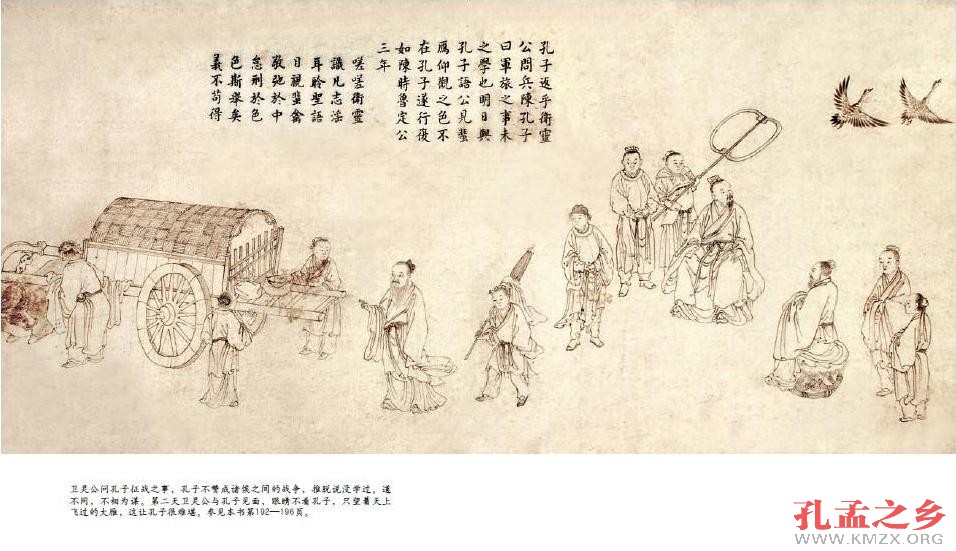 孔子返乎衛靈
公問兵陳孔子
曰軍旅之事未
之學也明日與
孔子語公見蜚
鴈仰觀之色不
在孔子遂行復
如陳時魯定公
三年
嗟嗟衛靈
識凡志滛
耳聆聖語
目視蜚禽
敬弛於中
怠刑於色
色斯舉矣
義不苟得
卫灵公问孔子征战之事，孔子不赞成诸侯之间的战争，推脱说没学过。道
不同，不相为谋。第二天卫灵公与孔子见面，眼睛不看孔子，只望着天上
飞过的大雁，这让孔子很难堪。参见本书第192—196页。
孔孟之乡
WWW.KMZX.ORG